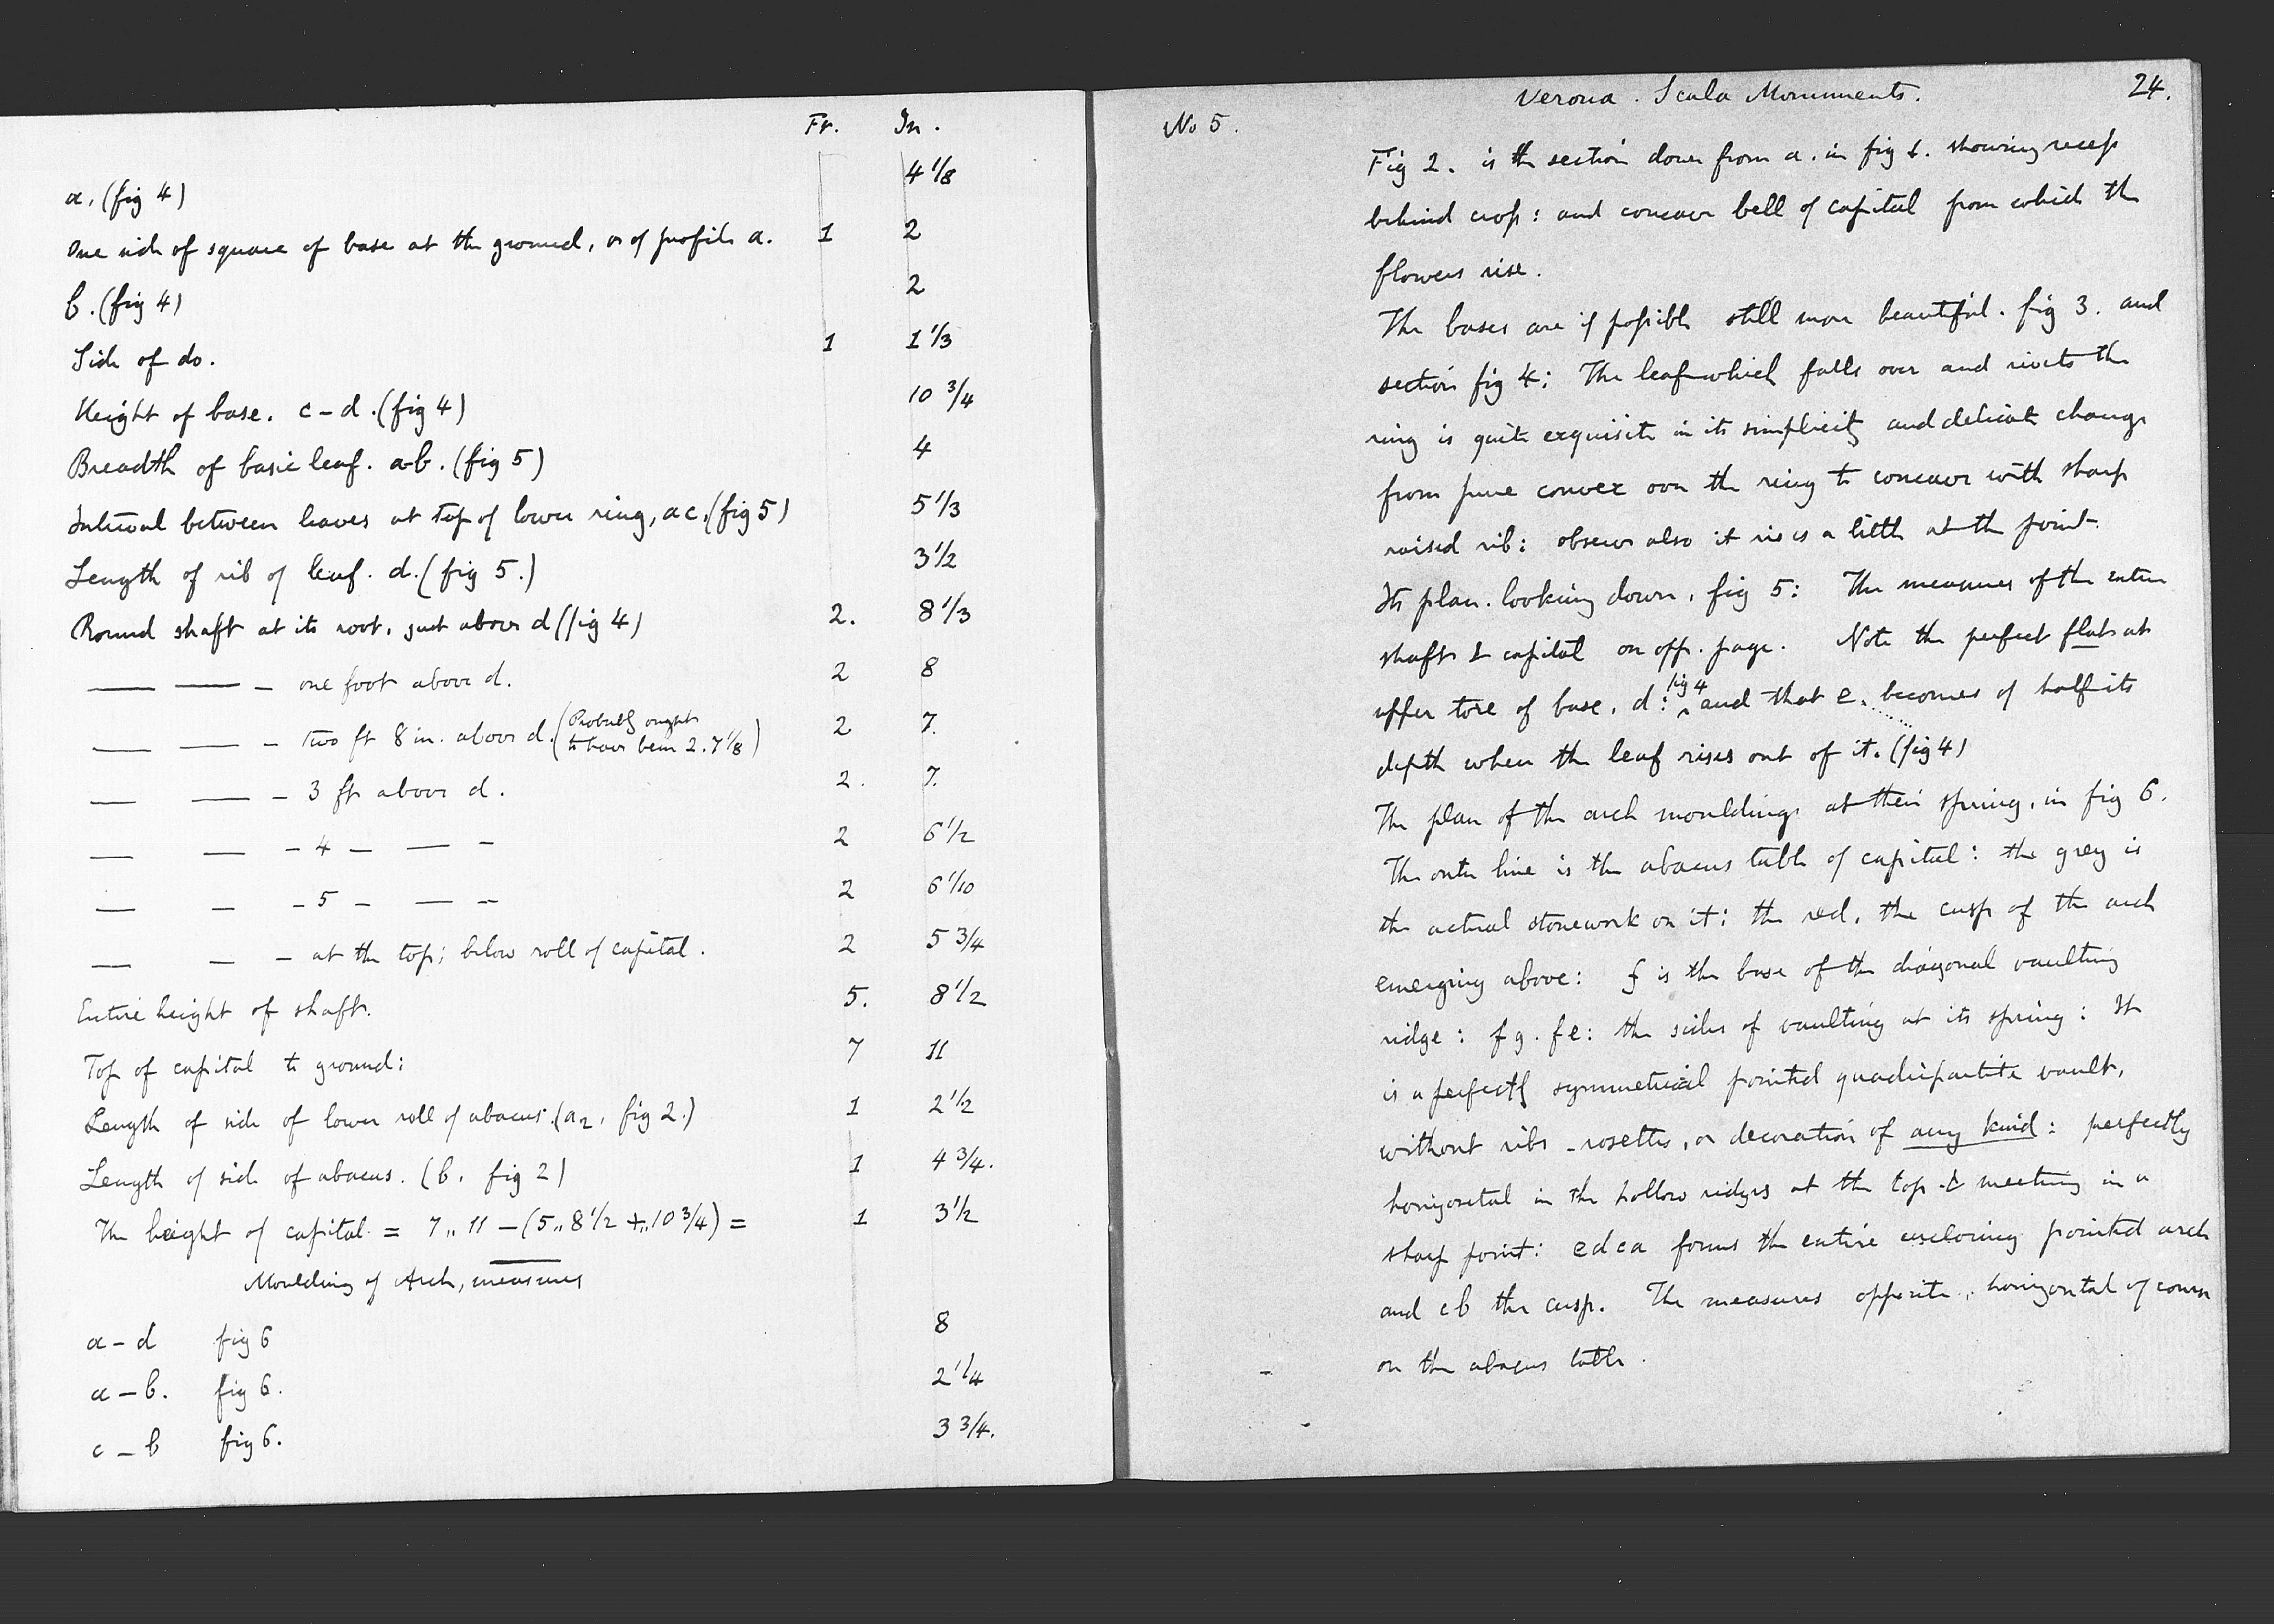 Ft. In.
a. (fig 4) 4 1/8
One side of square of base at the ground, or of profile a. 1 2
b. (fig 4) 2
Side of do. 1 1 1/3
Height of base. c - d. (fig 4) 10 3/4
Breadth of basic leaf. a-b. (fig 5) 4
Interval between leaves at top of lower ring, a c. (fig 5) 5 1/3
Length of rib of leaf. d. (fig 5.) 3 1/2
Round shaft at its root, just above d (fig 4) 2. 8 1/3
— — - one foot above d. 2 8
— — - two ft 8 in. above d. (Probably ought to have been 2.7 1/8) 2 7.
— — - 3 ft above d. 2. 7.
— — - 4 — — - 2 6 1/2
— - - 5 - — - 2 6 1/10
— - - at the top; below roll of capital. 2 5 3/4
Entire height of shaft. 5. 8 1/2
Top of capital to ground: 7 11
Length of side of lower roll of abacus. (a2, fig 2.) 1 2 1/2
Length of side of abacus. (b. fig 2) 1 4 3/4.
The height of capital = 7,, 11 - (5,, 8 1/2 +,, 10 3/4) = 1 3 1/2
Moulding of Arch, measures
a - d fig 6 8
a - b. fig 6. 2 1/4
c - b fig 6. 3 3/4.
Verona. Scala Monuments. 24.
No 5.
Fig 2. is the section down from a. in fig 1. showing recess
behind crop: and concave bell of capital from which the
flowers rise.
The bases are if possible still more beautiful. fig 3. and
section fig 4: The leaf which falls over and rivets the
ring is quite exquisite in its simplicity and delicate change
from pure convex over the ring to concave with sharp
raised rib: observe also it rises a little at the point.
Its plan. looking down, fig 5: The measures of the entire
shaft & capital on opp. page. Note the perfect flats at
upper tore of base, d: fig 4 and that e. becomes of half its
depth when the leaf rises out of it. (fig 4)
The plan of the arch mouldings at their spring, in fig 6.
The outer line is the abacus table of capital: the grey is
the actual stonework on it: the red, the cusp of the arch
emerging above: f is the base of the diagonal vaulting
ridge: f g. f e: the sides of vaulting at its spring: It
is a perfectly symmetrical pointed quadripartite vault,
without ribs - rosettes, or decoration of any kind: perfectly
horizontal in the hollow ridges at the top & meeting in a
sharp point: e d c a forms the entire enclosing pointed arch
and c b the cusp. The measures opposite, horizontal of course
on the abacus table.